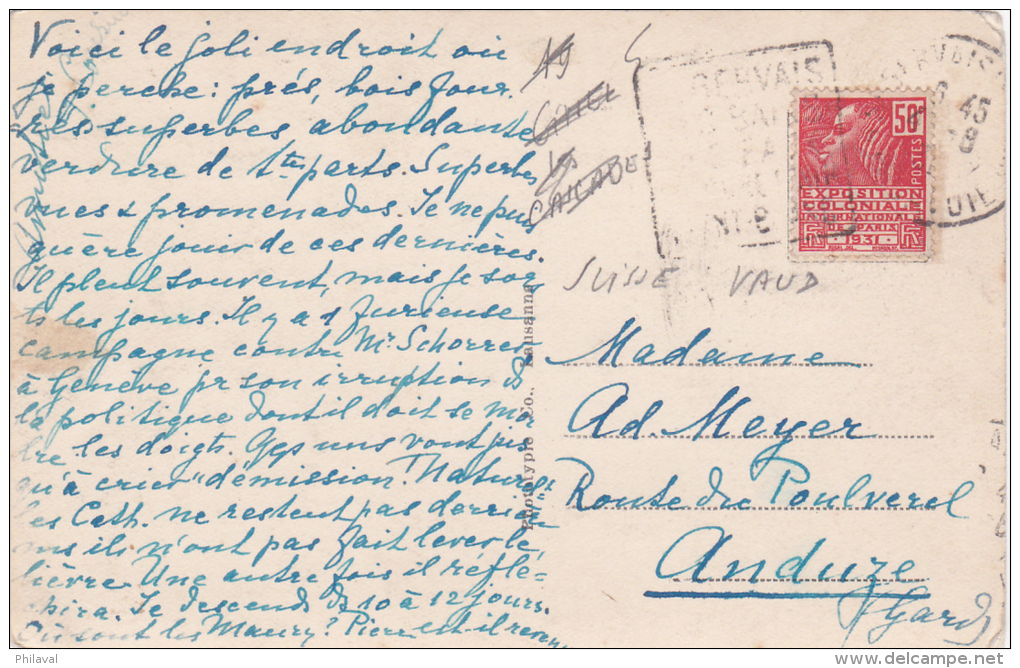 Voici le joli endroit où
je perche : prés, bois four-
rés superbes abondante
verdure de ttes parts. Superbes
vues & promenades. Je ne puis
guère jouir de ces dernières.
Il pleut souvent, mais je sors
ts les jours. Il y a 1 furieuse
campagne contre Mr. Schorrer
à Genève pr son irruption ds
la politique dont il doit se mor
dre les doigts. Qqs uns vont jus
qu'à crier "démission". Naturellt
les Cath. ne restent pas derrière
ms ils n'ont pas fait lever le
lièvre. Une autre fois il réflé-
chira. Je descends ds 10 à 12 jours.
Où sont les Maury? Pierre est-il revenu
Phototypie Co., Lausanne
GERVAIS
50c
POSTES
EXPOSITION
COLONIALE
INTERNATIONALE
DE PARIS
1931
SUISSE VAUD
Madame
Ad. Meyer
Route du Poulverel
Anduze
(Gard)
Philaval
delcampe.net